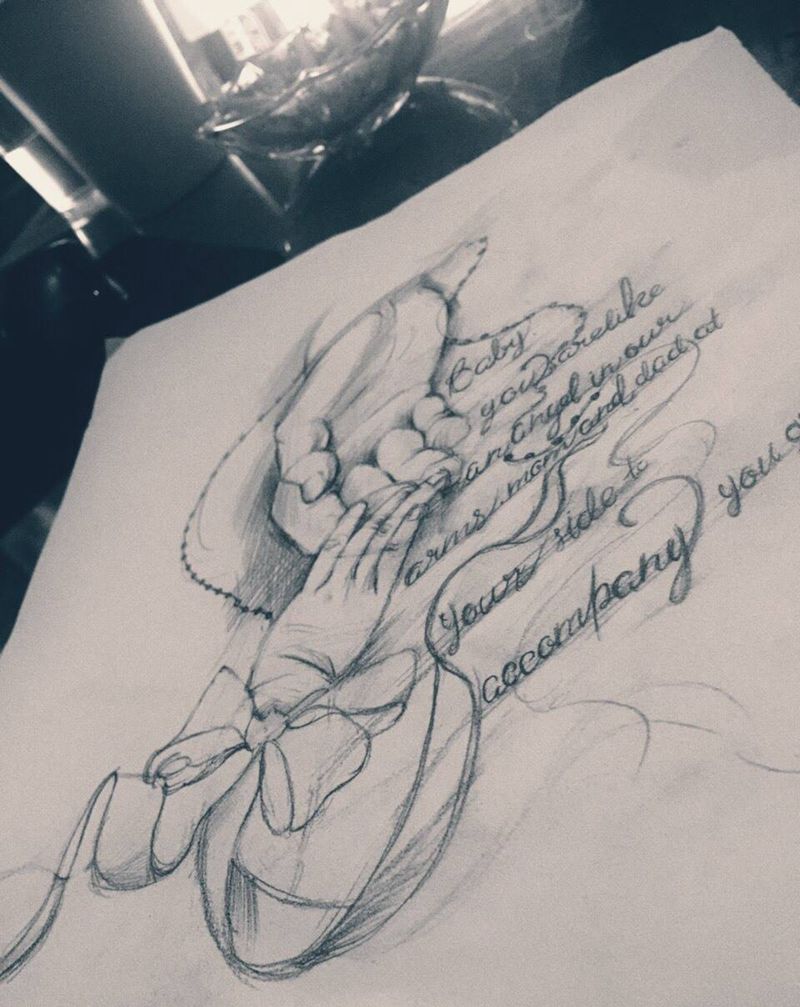 Baby
you are like
an angel in our
arms mom and dad at
your side to
accompany you